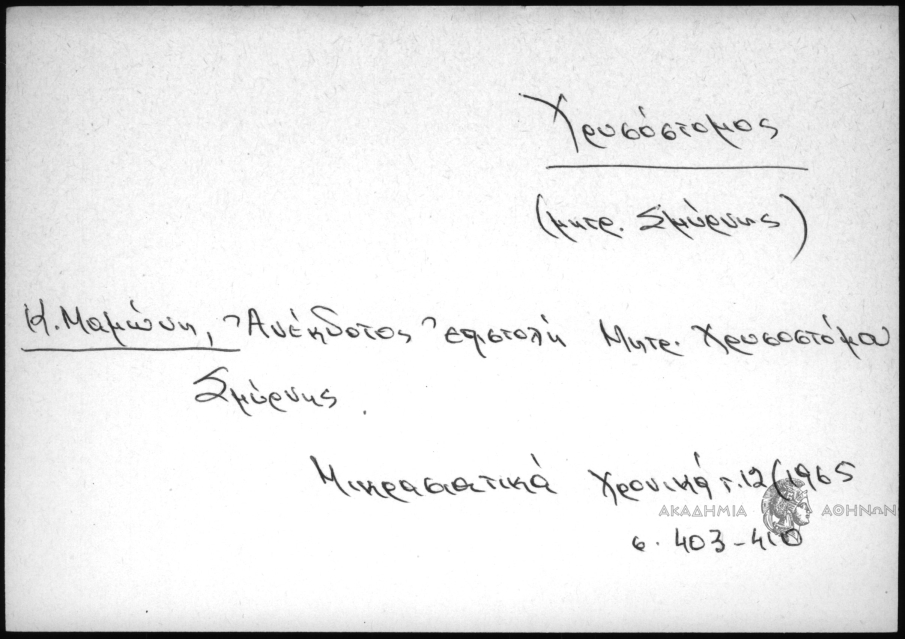 Χρυσόστομος
(μητρ. Σμύρνης)
Κ. Μαμώνη, Ἀνέκδοτος ἐπιστολὴ Μητρ. Χρυσοστόμου
Σμύρνης.
Μικρασιατικά Χρονικά τ. 12 (1965
ΑΚΑΔΗΜΙΑ ΑΘΗΝΩΝ
σ. 403-410